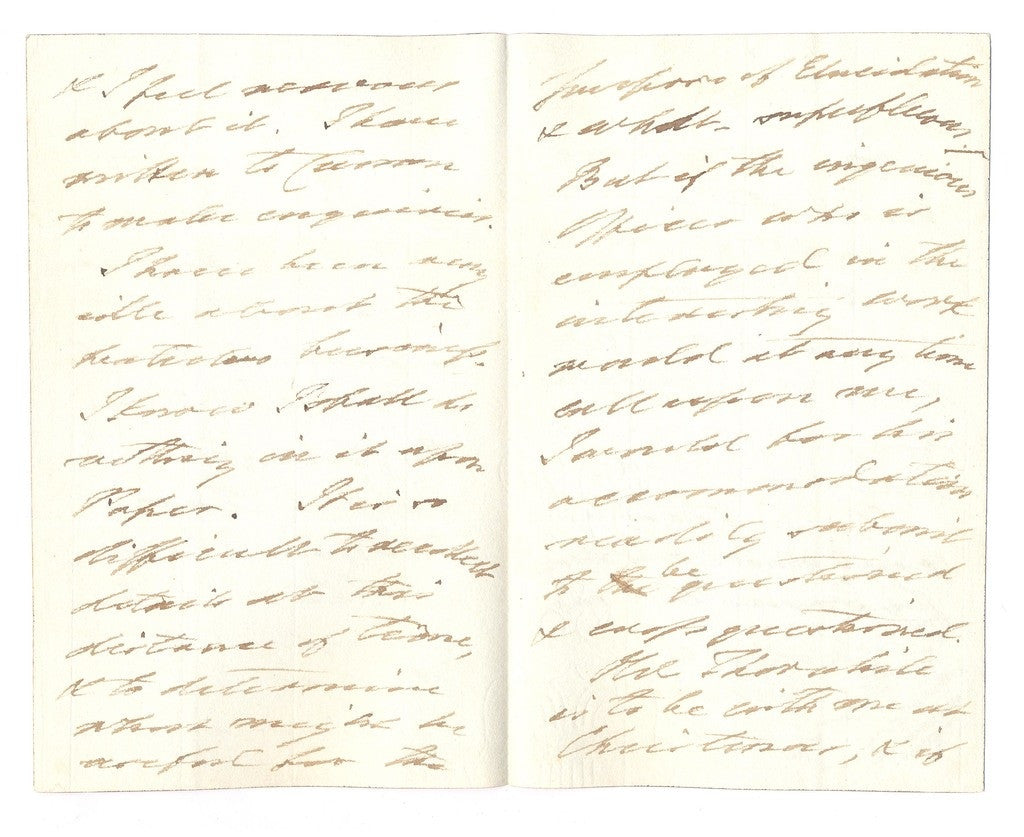 & I feel nervous
about it. I have
written to Curzon
to make enquiries.
I have been very
idle about the
business.
I know I shall do
nothing in it upon
Paper. It is so
difficult to recollect
details at this
distance of time,
& to determine
what might be
useful for the
purpose of Elucidation
& what superfluous
But if the ingenious
Officer who is
employed in the
interesting work
would at any time
call upon me,
I would for his
accommodation
readily submit
to be questioned
& cross questioned.
Thornhill
is to be with me at
Christmas, & if